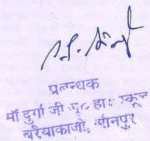 प्रबन्धक
माँ दुर्गा जी जू० हा० स्कूल
बरैयाकाजी, जौनपुर